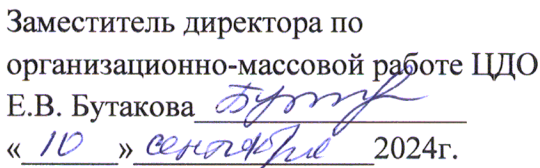 Заместитель директора по
организационно-массовой работе ЦДО
Е.В. Бутакова
«10» сентября 2024г.